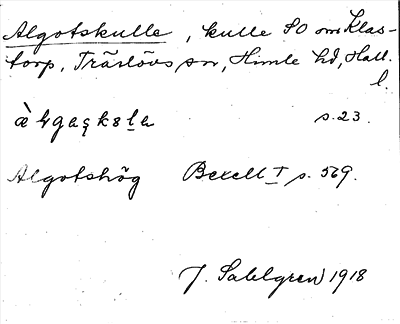 Algotskulle, kulle SO om Klas-
torp, Träslövs sn, Himle hd, Hall.
l.
s. 23.
Algotshög Bexell I s. 569.
J. Sahlgren 1918